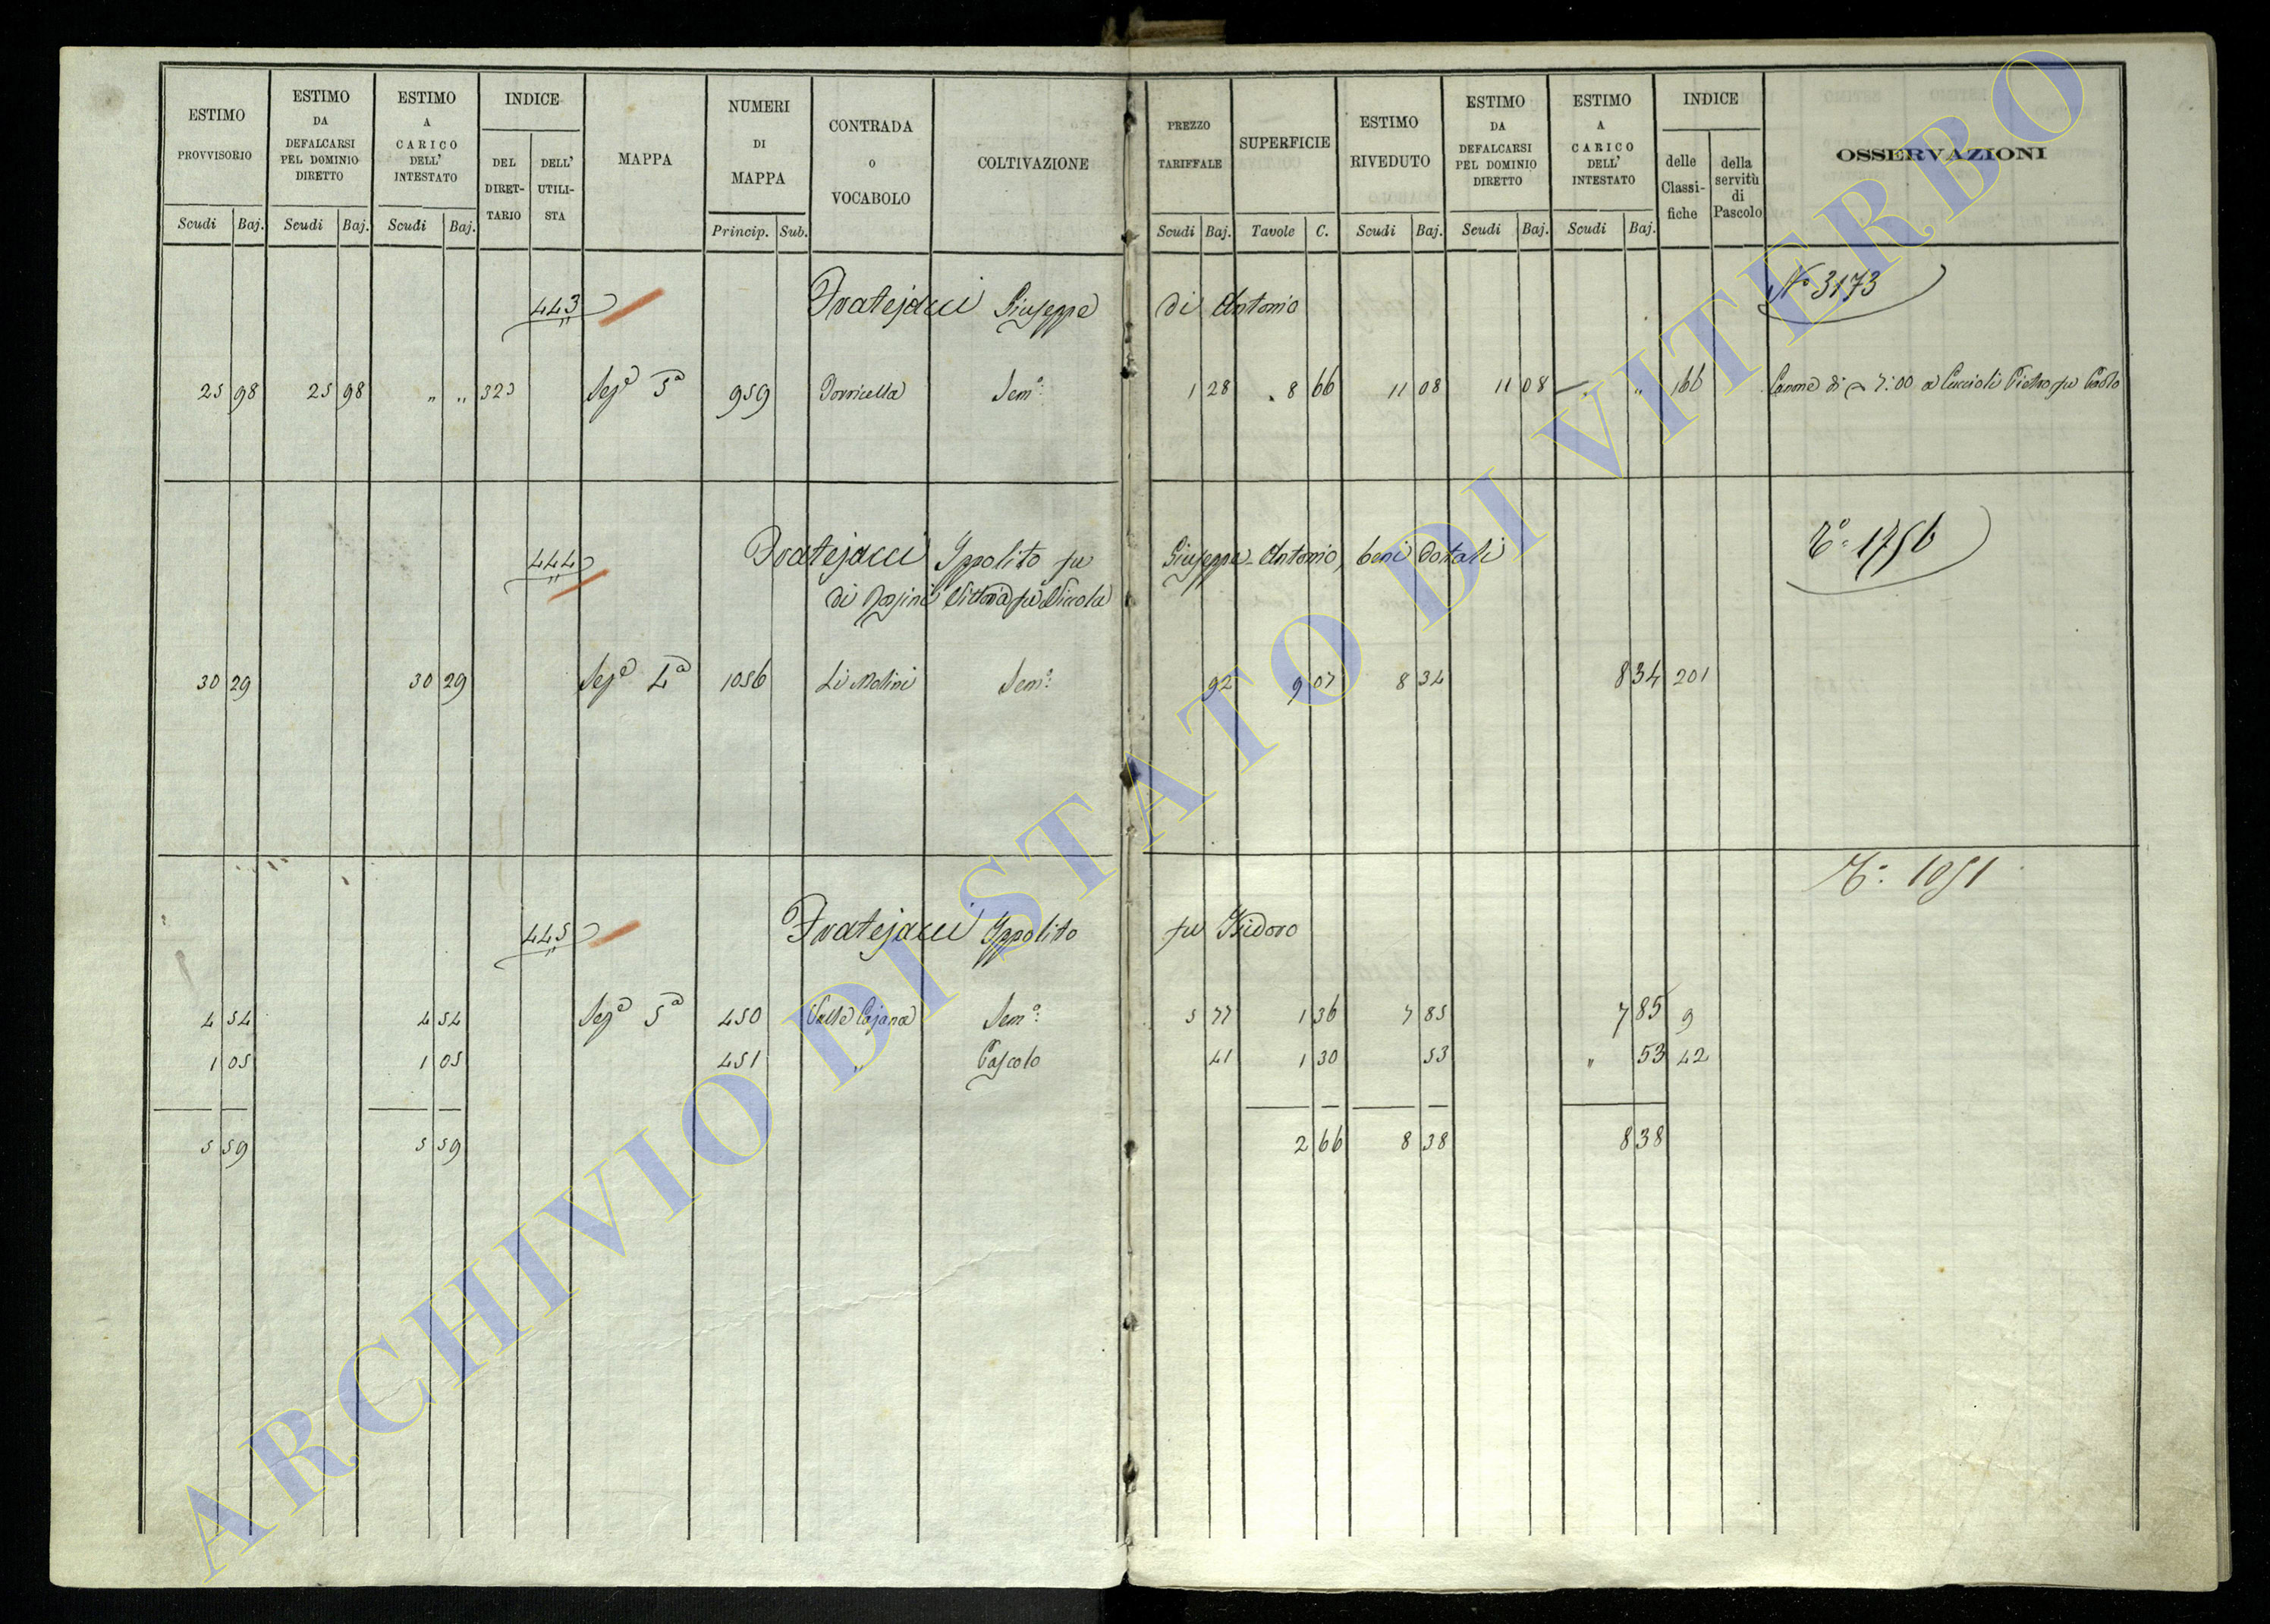 ESTIMO PROVVISORIO | ESTIMO DA DEFALCARSI PEL DOMINIO DIRETTO | ESTIMO A CARICO DELL' INTESTATO | INDICE | MAPPA | NUMERI DI MAPPA | CONTRADA O VOCABOLO | COLTIVAZIONE | PREZZO TARIFFALE | SUPERFICIE | ESTIMO RIVEDUTO | ESTIMO DA DEFALCARSI PEL DOMINIO DIRETTO | ESTIMO A CARICO DELL' INTESTATO | INDICE | OSSERVAZIONI
DEL DIRETTARIO | DELL' UTILISTA | delle Classifiche | della servitù di Pascolo
Scudi | Baj. | Scudi | Baj. | Scudi | Baj. | Princip. | Sub. | Scudi | Baj. | Tavole | C. | Scudi | Baj. | Scudi | Baj. | Scudi | Baj.
443 Fratejacci Giuseppe di Antonio Nº 3173
25 98 25 98 " " 323 Sezª 5ª 959 Torricella Semº: 1 28 8 66 11 08 11 08 " " 166 Canone di 7:00 a Cuccioli Pietro fu Paolo
444 Fratejacci Ippolito fu Giuseppe Antonio, beni dotali 1756
di Vittoria fu Niccola
30 29 30 29 Sezª 4ª 1056 Li Molini Semº: 92 9 07 8 34 8 34 201
1051
445 Fratejacci Ippolito fu Isidoro
4 54 4 54 Sezª 5ª 450 Valle Cajana Semº: 5 77 1 36 7 85 7 85 9
1 05 1 05 451 " Pascolo 41 1 30 53 " 53 42
5 59 5 59 2 66 8 38 8 38
ARCHIVIO DI STATO DI VITERBO